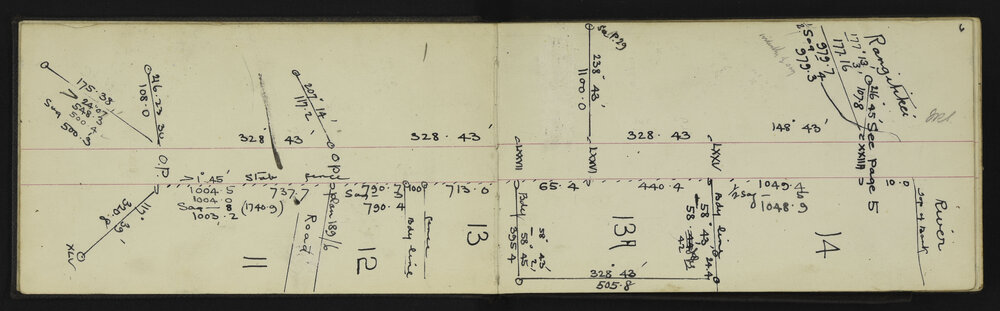 175° 39'
24.07
548.3
500.4
Sag
500.3
216.23 30
108.0
207° 14'
117.2
O.P.
O.P.
328° 43'
328. 43'
1° 45'
1004.5
1004.0
Sag 8
1003.2
(1740.9)
Slab fence
737.7
Road
plan 189/6
790.7
Sag 3
790.4
100
fence
Bdy line
713.0
117° 39'
320.8
XLV
11
12
13
See P.29
238° 43'
1100.0
LXXVII
LXXVI
LXXV
328. 43'
65.4
440.4
Bdy
58° 43'
2'
58° 45
395.4
13A
328° 43'
505.8
Bdy line
58° 43'
58. 42
24.4
Rangitikei
177° 13'
3'
177° 16
216° 45'
107.8
979.7
Sag 4
979.3
148° 43'
LXXIIA
See page 5
1049.4
½ Sag
1048.9
10.0
14
Top of Bank
River